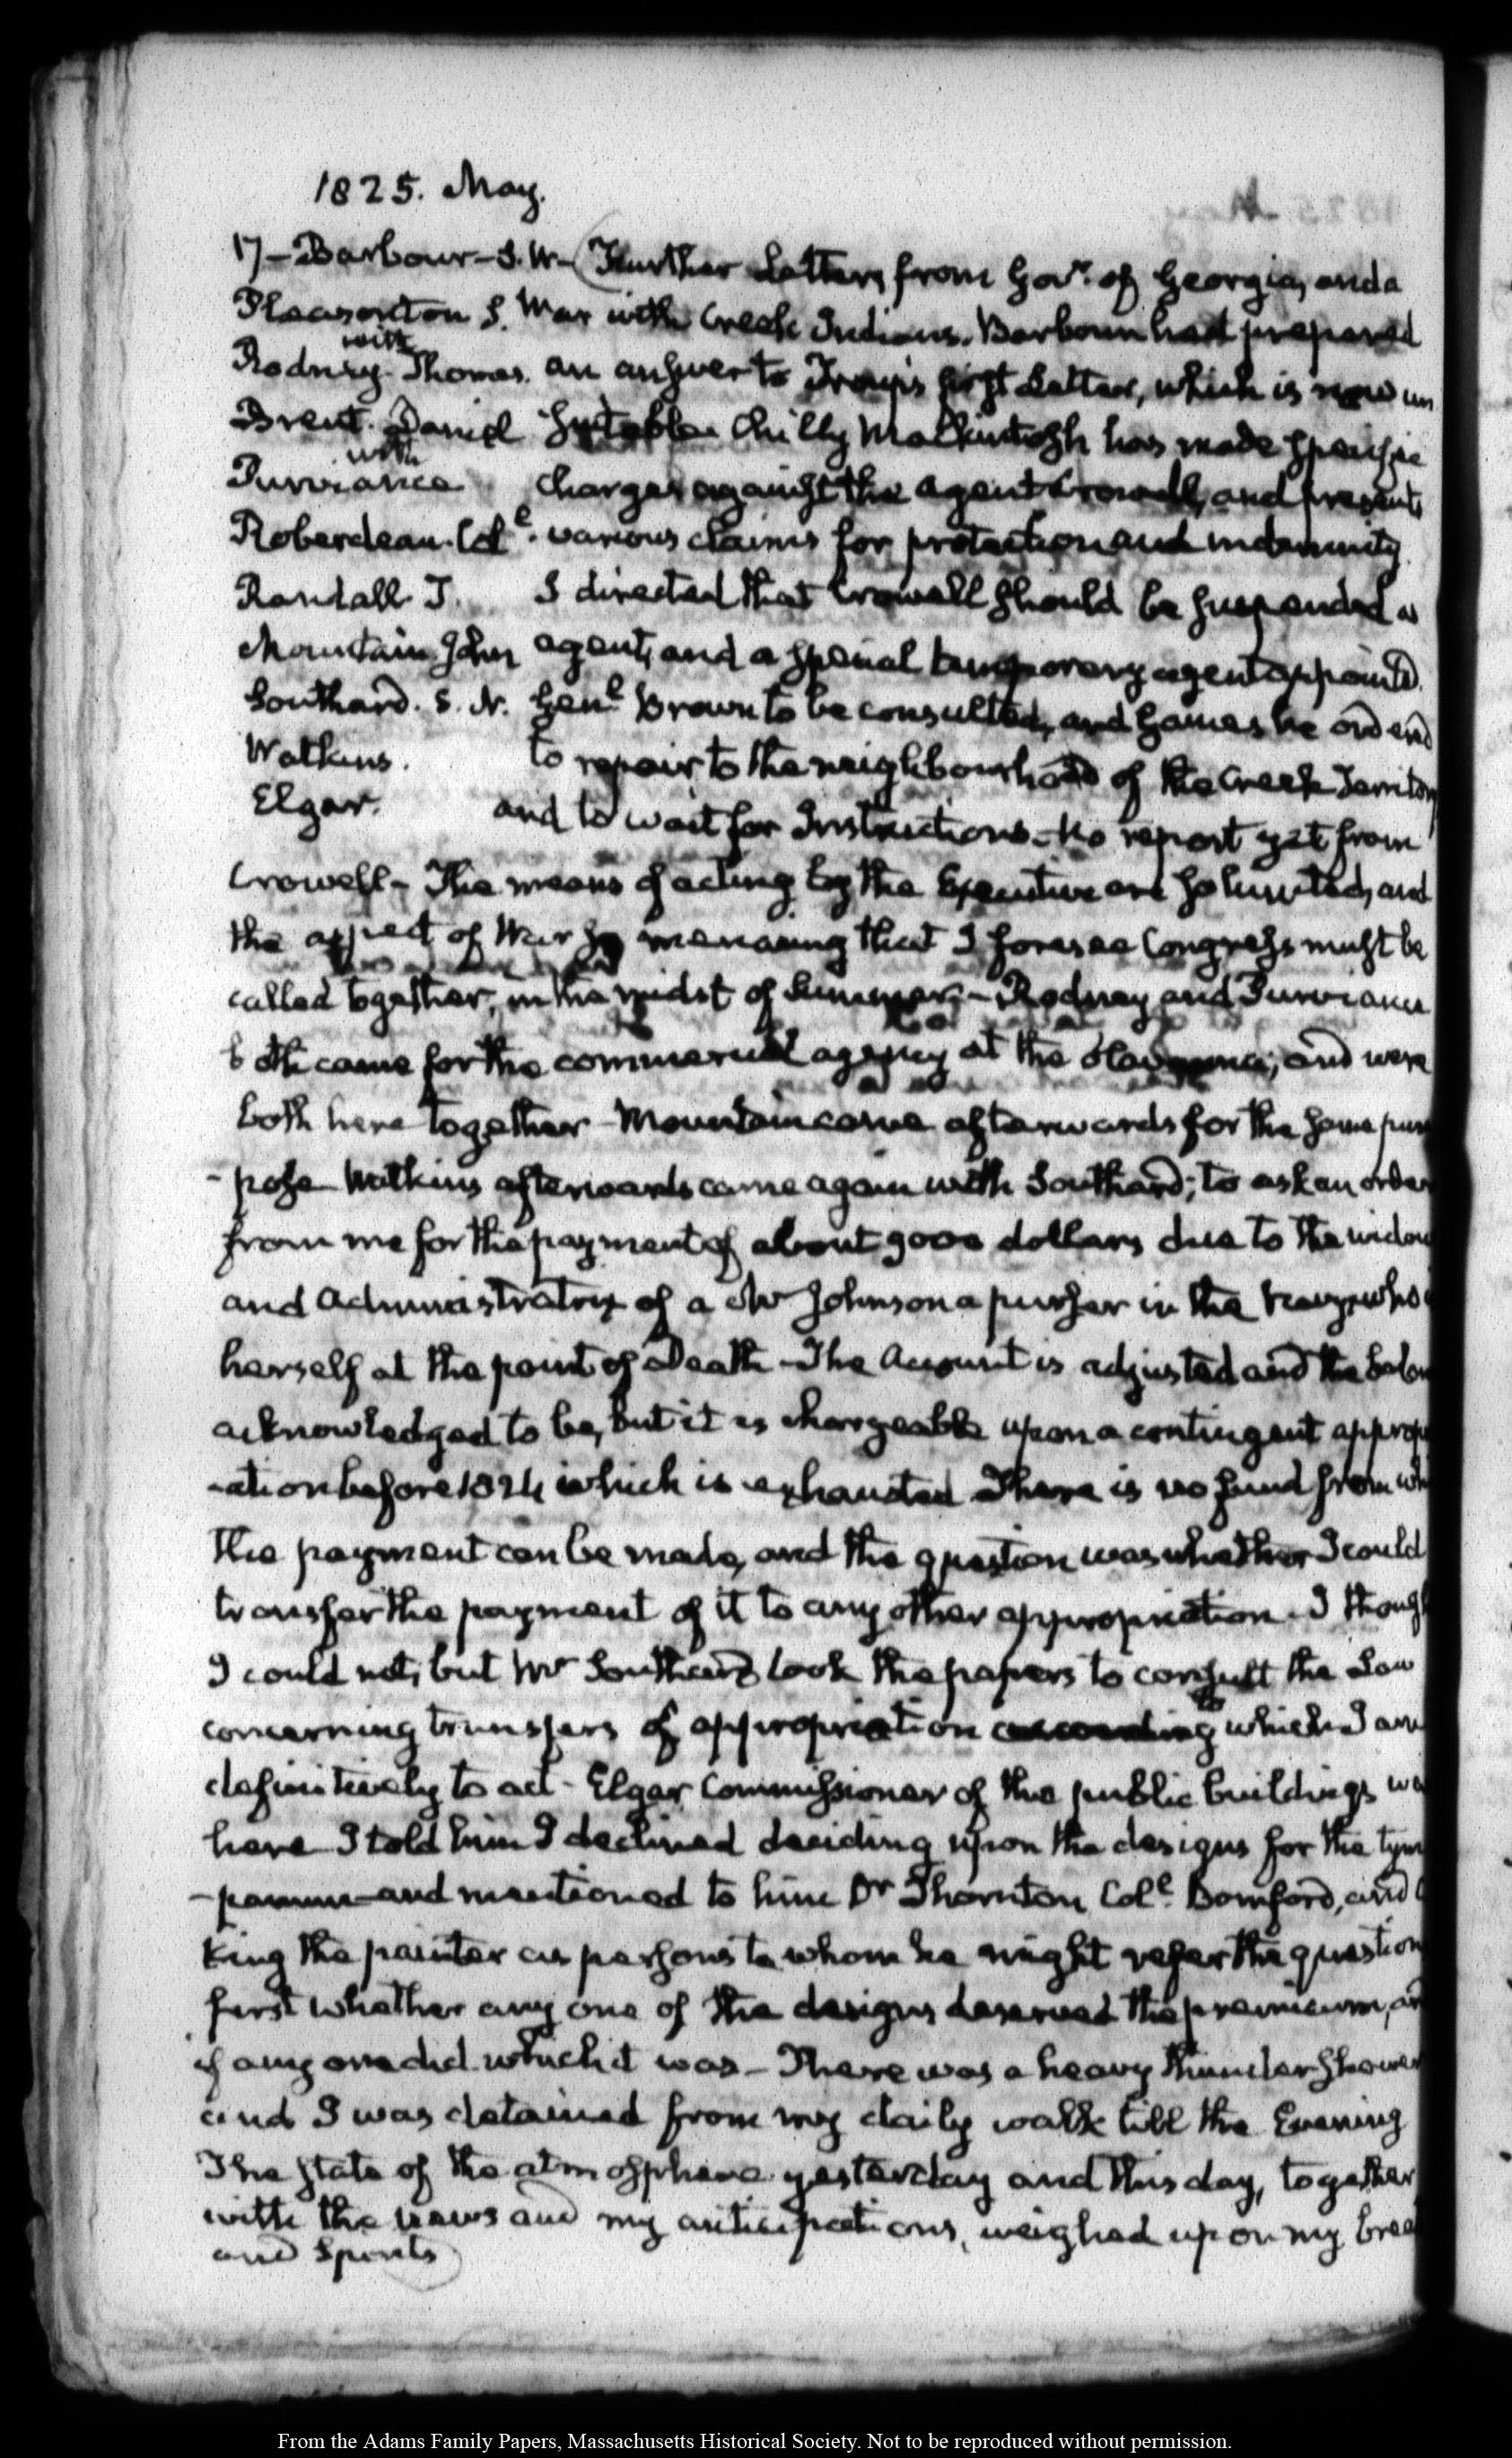 1825. May.
17 – Barbour – S. W – (Further Letters from Govr. of Georgia, and a
Pleasonton S. War with Creek Indians. Barbour had prepared
with
Rodney. Thomas. an answer to Troup's first Letter, which is now un
Brent. Daniel suitable Chilly MacKintosh has made specific
with
Purviance charges against the agent Crowell, and presents
Roberdeau. Coll. various claims for protection and indemnity
Randall J. I directed that Crowell should be suspended as
Mountain. John agent, and a special temporary agent appointed.
Southard. S. N. Genl. Brown to be consulted, and Gaines be ordered
Watkins. to repair to the neighbourhood of the Creek Territory
Elgar. and to wait for Instructions – No report yet from
Crowell – The means of acting by the Executive are so limited, and
the aspect of War so menacing that I foresee Congress must be
called together, in the midst of Summer. – Rodney and Purviance
both came for the commercial agency at the Havanna; and were
both here together – Mountain came afterwards for the same pur
-pose Watkins afterwards came again with Southard; to ask an order
from me for the payment of about 9000 dollars due to the widow
and administratrix of a Mr Johnson a purser in the Navy, who i
herself at the point of Death – The Account is adjusted and the balan
acknowledged to be, but it is chargeable upon a contingent appropri
-ation before 1824 which is exhausted There is no fund from wh
the payment can be made, and the question was whether I could
transfer the payment of it to any other appropriation – I though
I could not, but Mr Southard took the papers to consult the Law
concerning transfers of appropriation according to which I am
definitively to act – Elgar Commissioner of the public buildings wa
here I told him I declined deciding upon the designs for the tym
-panum – and mentioned to him Dr Thornton Coll. Bomford, and
King the painter as persons to whom he might refer the question
first whether any one of the designs deserved the premium, an
if any one did which it was – There was a heavy thunder shower
and I was detained from my daily walk till the Evening
The state of the atmosphere yesterday and this day, together
with the news and my anticipations, weighed upon my brea
and Spirits)
From the Adams Family Papers, Massachusetts Historical Society. Not to be reproduced without permission.